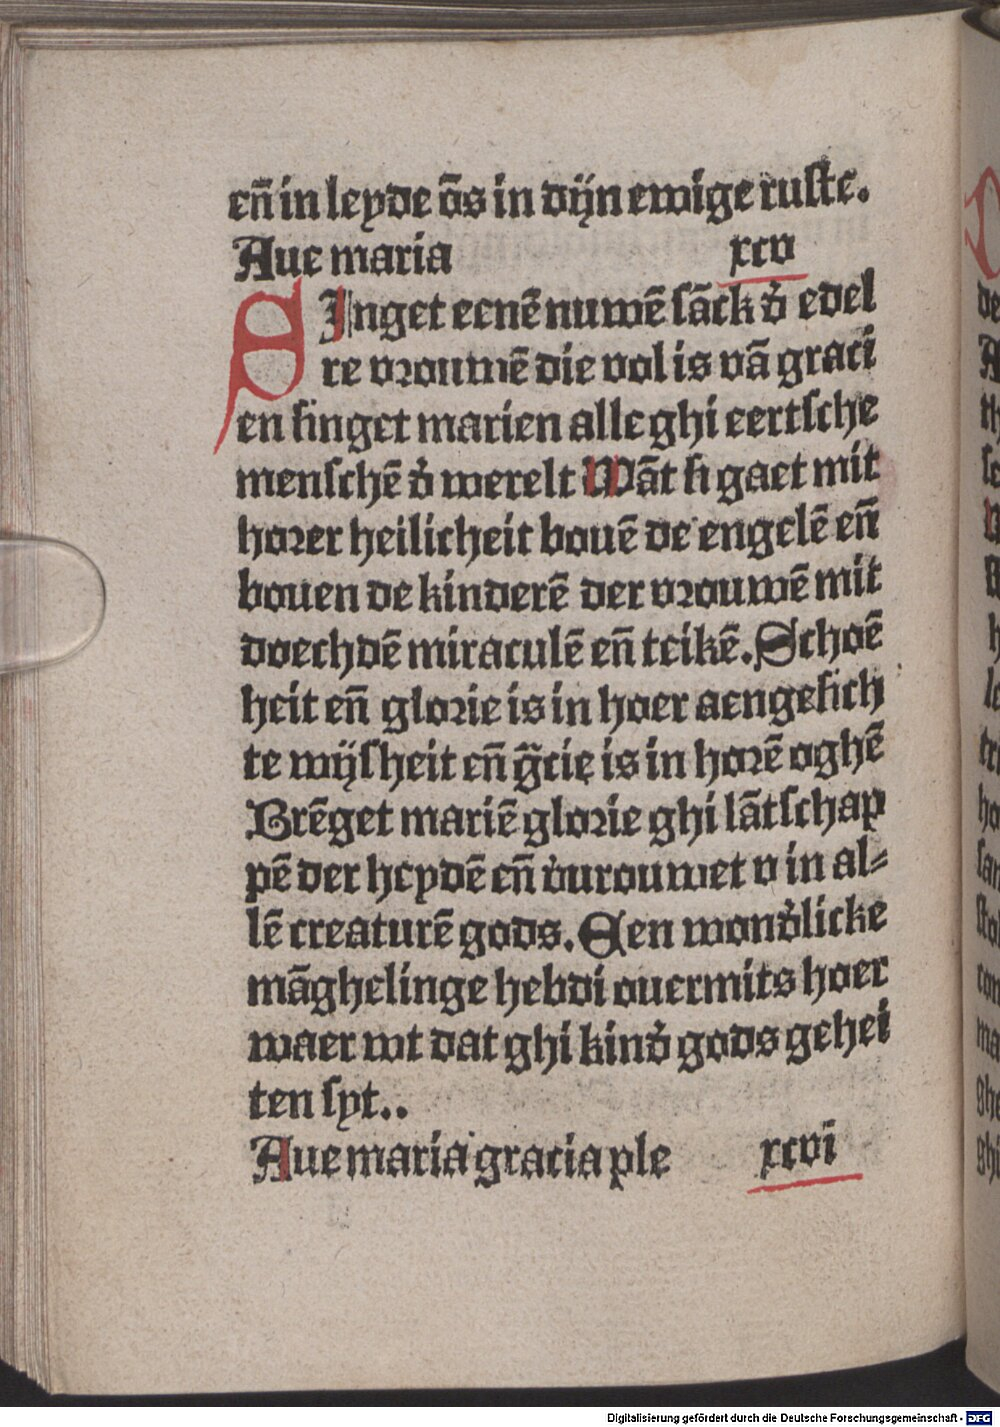 en̄ in leyde ōs in dijn ewige ruste.
Aue maria xcv
SInget eenē nuwē sāck d' edel
re vrouwē die vol is vā graci
en singet marien alle ghi eertsche
menschē d' werelt Wāt si gaet mit
horer heilicheit bouē de engelē en̄
bouen de kinderē der vrouwē mit
doechdē miraculē en̄ teikē. Schoē
heit en̄ glorie is in hoer aengesich
te wijsheit en̄ g̃cie is in horē oghē
Brēget mariē glorie ghi lātschap
pē der heydē en̄ v'urouwet v in al=
lē creaturē gods. Een wond'licke
māghelinge hebdi ouermits hoer
waer wt dat ghi kind' gods gehei
ten syt..
Aue maria gracia ple xcvi
Digitalisierung gefördert durch die Deutsche Forschungsgemeinschaft - DFG